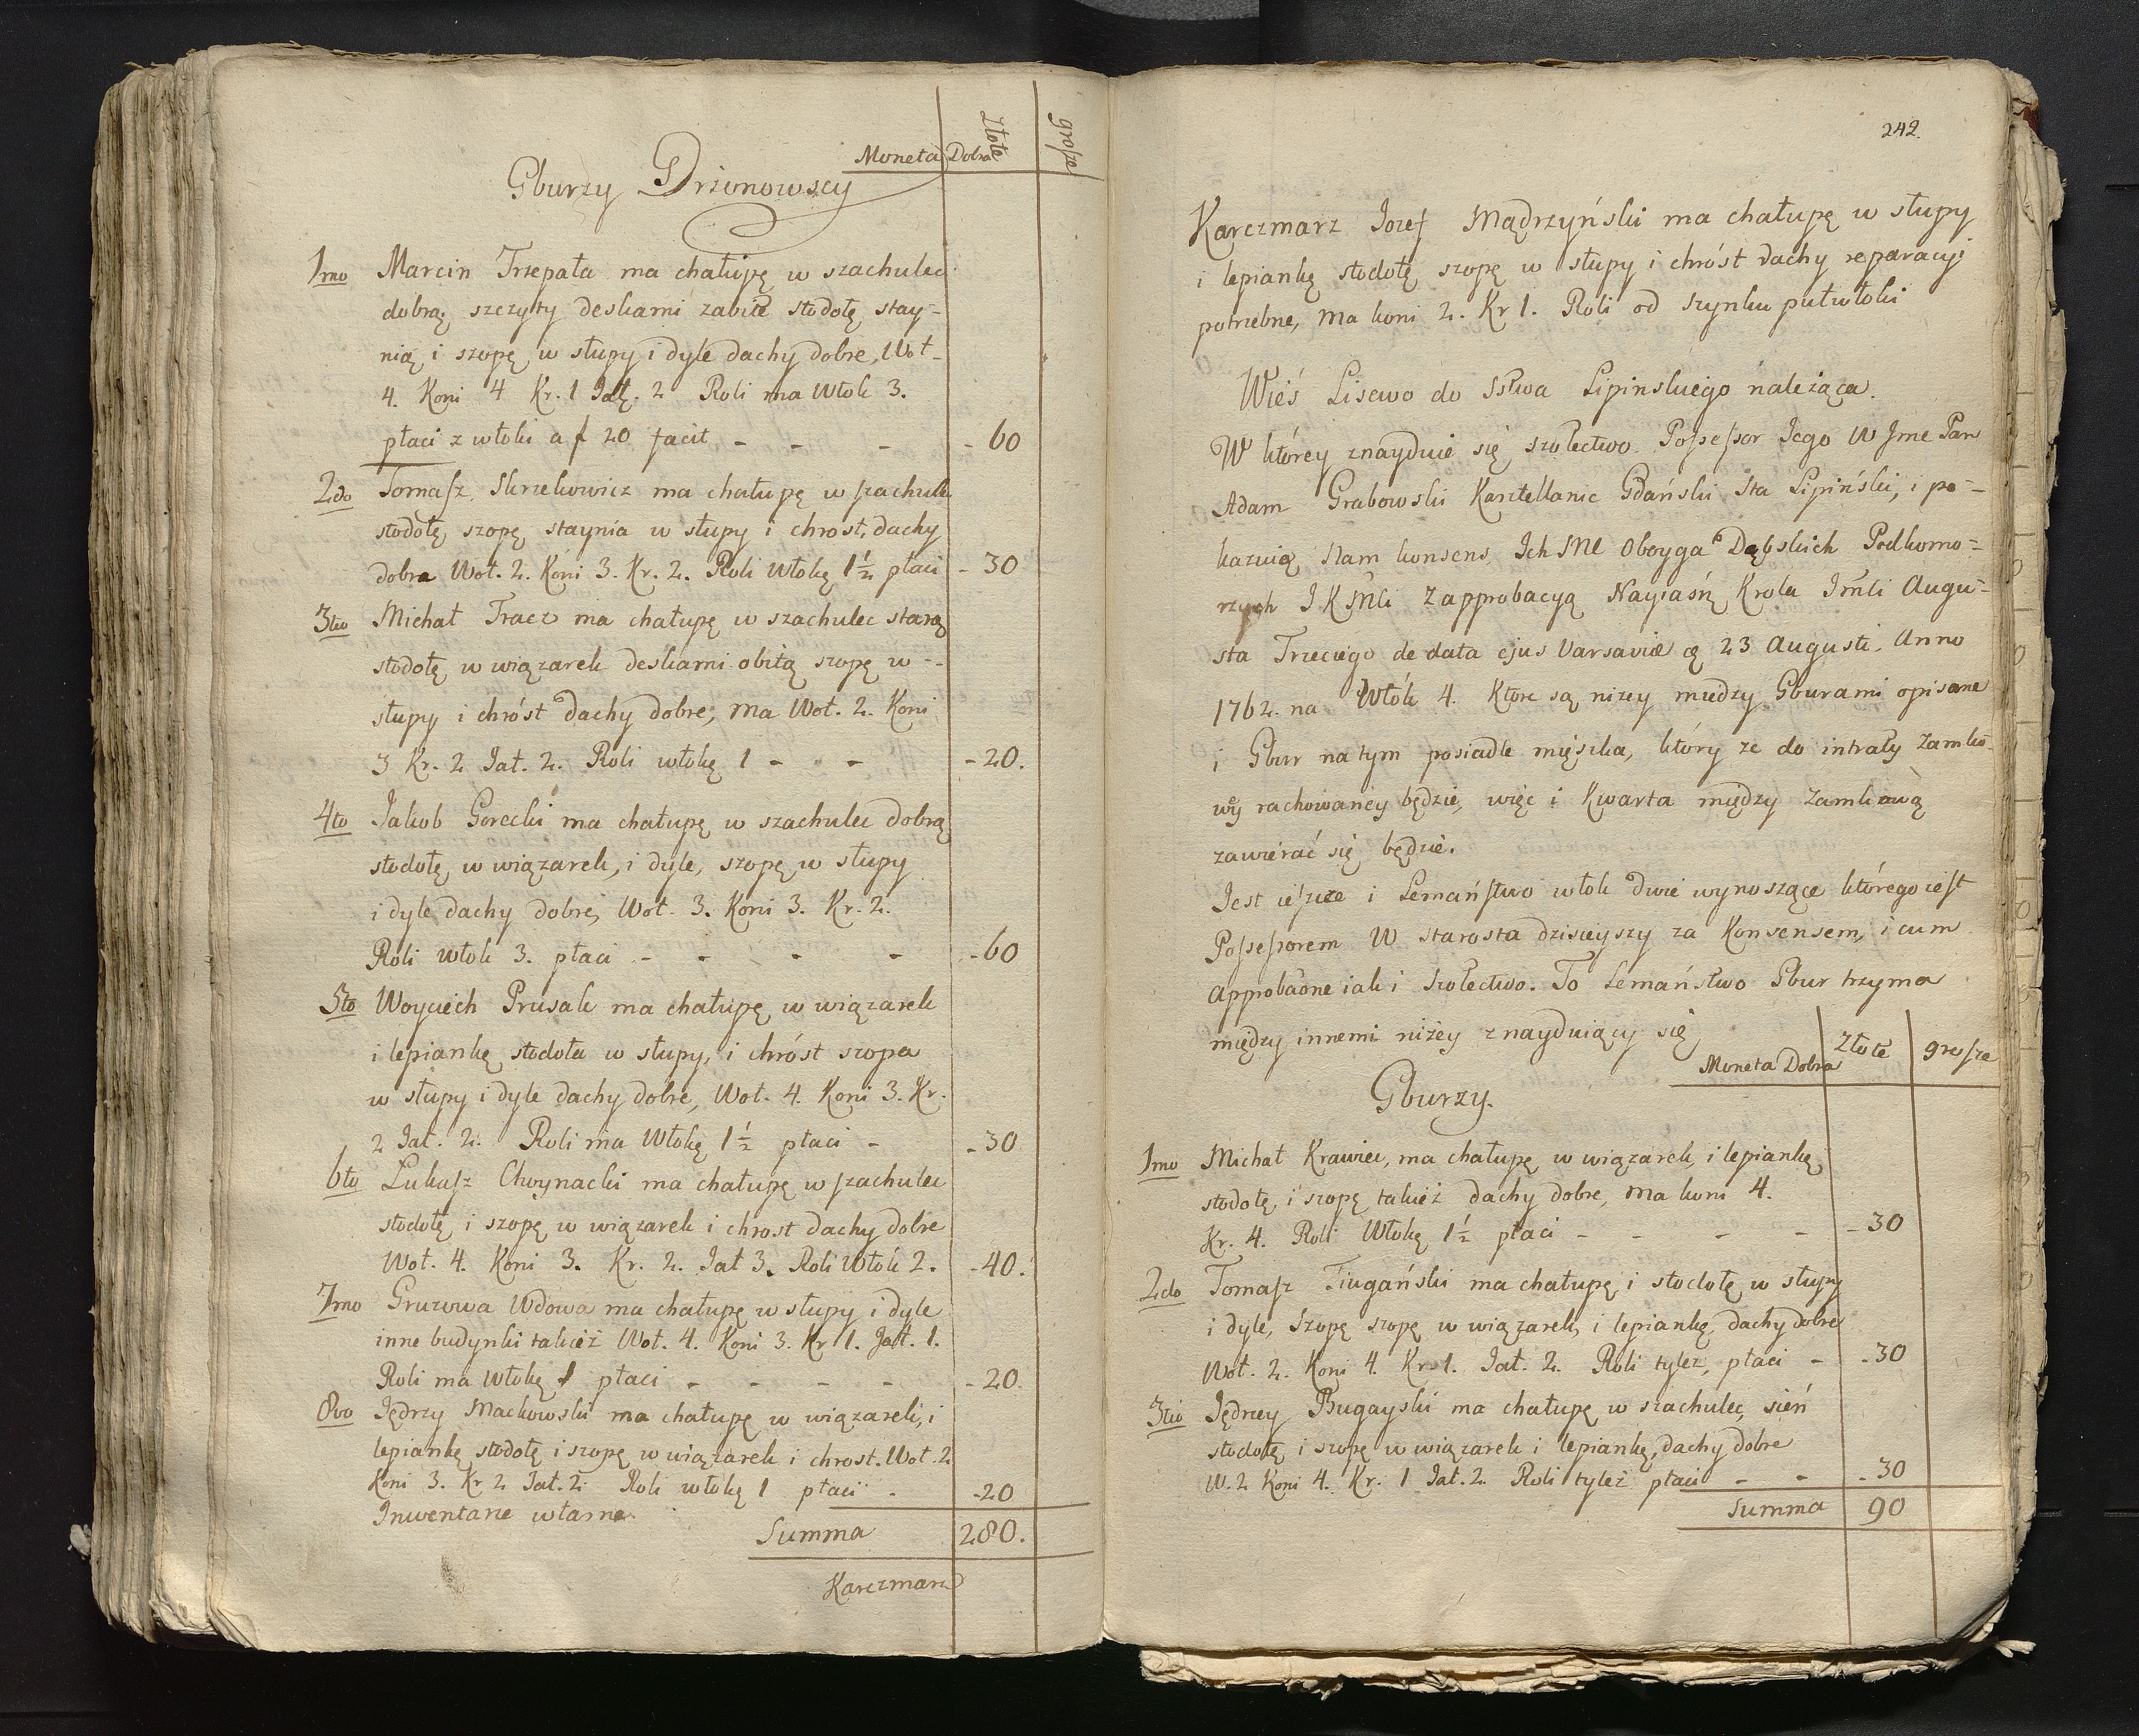 Moneta Dobra
złote
grosze
Gburzy Drżonowscy
1mo Marcin Trzepała ma chałupę w szachulec
dobrą szczyty deskami zabite stodołę stay-
nią i szopę w słupy i dyle dachy dobre, Woł.
4. Koni 4 Kr. 1 Jał. 2 Roli ma Włok 3.
płaci z włoki a f 20 facit - - - - 60
2do Tomasz Skrzekowicz ma chałupę w szachulec
stodołę szopę staynia w słupy i chrost, dachy
dobra Woł. 2. Koni 3. Kr. 2. Roli Włokę 1½ płaci - 30
3tio Michał Tracz ma chałupę w szachulec starą
stodołę w wiązarek deskami obitą szopę w --
słupy i chróst dachy dobre, ma Woł. 2. Koni
3 Kr. 2 Jał. 2. Roli włokę 1 - - - 20.
4to Jakob Gorecki ma chałupę w szachulec dobrą
stodołę w wiązarek, i dyle, szopę w słupy
i dyle dachy dobre, Woł. 3. Koni 3. Kr. 2.
Roli włok 3. płaci - - - - - 60
5to Woyciech Prusak ma chałupę w wiązarek
i lepiankę stodoła w słupy, i chróst szopa
w słupy i dyle dachy dobre, Woł. 4. Koni 3. Kr.
2 Jał. 2. Roli ma Włokę 1½ płaci - - 30
6to Łukasz Choynacki ma chałupę w szachulec
stodołę i szopę w wiązarek i chrost dachy dobre
Woł. 4. Koni 3. Kr. 2. Jał 3. Roli Włók 2. - 40.
7mo Gruzowa Wdowa ma chałupę w słupy i dyle
inne budynki takież Woł. 4. Koni 3. Kr 1. Jał. 1.
Roli ma Włokę 1 płaci - - - - - 20.
8vo Jędrzy Mackowski ma chałupę w wiązarek, i
lepiankę stodołę i szopę w wiązarek i chrost. Woł. 2
Koni 3. Kr 2 Jał. 2. Roli włokę 1 płaci - - 20
Inwentarze własne.
Summa 280.
Karczmarz
242.
Karczmarz Jozef Mądrzyński ma chałupę w słupy
i lepiankę stodołę szopę w słupy i chróst dachy reparacyi
potrzebne, ma koni 2. Kr 1. Roli od szynku pułwłoki
Wieś Lisewo do Sstwa Lipinskiego należąca.
W którey znayduie się szołectwo. Possessor Jego W Jme Pan
Adam Grabowski Kasztellanic Gdański Sta Lipiński, i po-
kazuią nam konsens, Ich Mć oboyga Dąbskich Podkomo-
rzych J K Mći z approbacyą Nayiaśń Krola Jmći Augu-
sta Trzeciego de data ejus Varsavie 23 Augusti. Anno
1762. na Włók 4. Ktore są niżey między Gburami opisane
i Gbur na tym posiadle mięszka, który ze do intraty Zamko-
wy rachowaney będzie, więc i Kwarta między Zamkową
zawierać się będzie.
Jest ieszcze i Lemaństwo włok dwie wynoszące którego iest
Possessorem W Starosta dzisieyszy za Konsensem, i cum
approbaōne iak i szołectwo. To Lemaństwo Gbur trzyma
między innemi niżey znayduiący się
Moneta Dobra złote grosze
Gburzy.
1mo Michał Krawiec, ma chałupę w wiązarek, i lepiankę
stodołę, i szopę takież dachy dobre, ma koni 4.
Kr. 4. Roli Włokę 1½ płaci - - - - - 30
2do Tomasz Fiugański ma chałupę i stodołę w słupy
i dyle, szopę szopę w wiązarek, i lepiankę dachy dobre
Woł. 2. Koni 4. Kr. 1. Jał. 2. Roli tylez, płaci - - 30
3tio Jędrzey Bugayski ma chałupę w szachulec, sień
stodołę i szopę w wiązarek i lepiankę, dachy dobre
W. 2 Koni 4. Kr. 1 Jał. 2. Roli tyleż płaci - - - 30
Summa 90